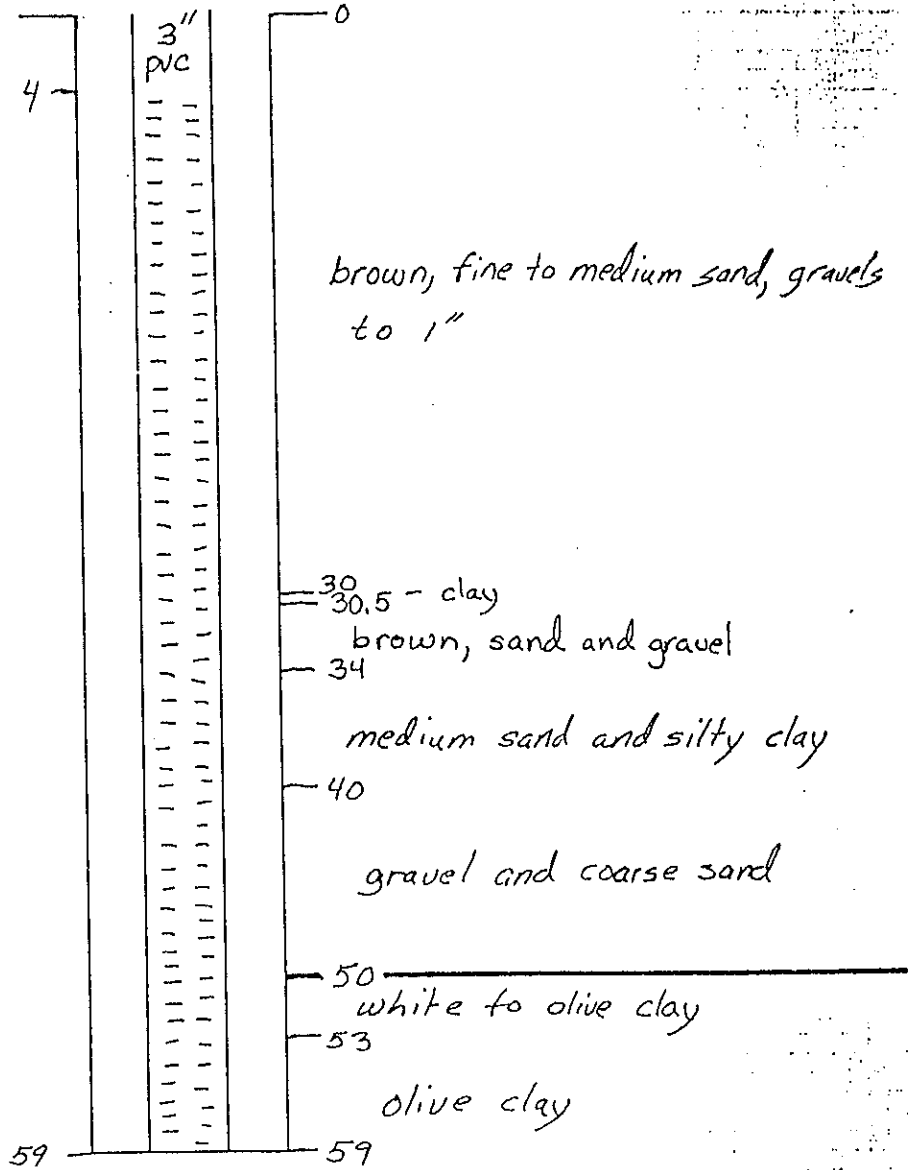 0
3"
PVC
4
brown, fine to medium sand, gravels
to 1"
30
30.5 - clay
brown, sand and gravel
34
medium sand and silty clay
40
gravel and coarse sand
50
white to olive clay
53
olive clay
59
59